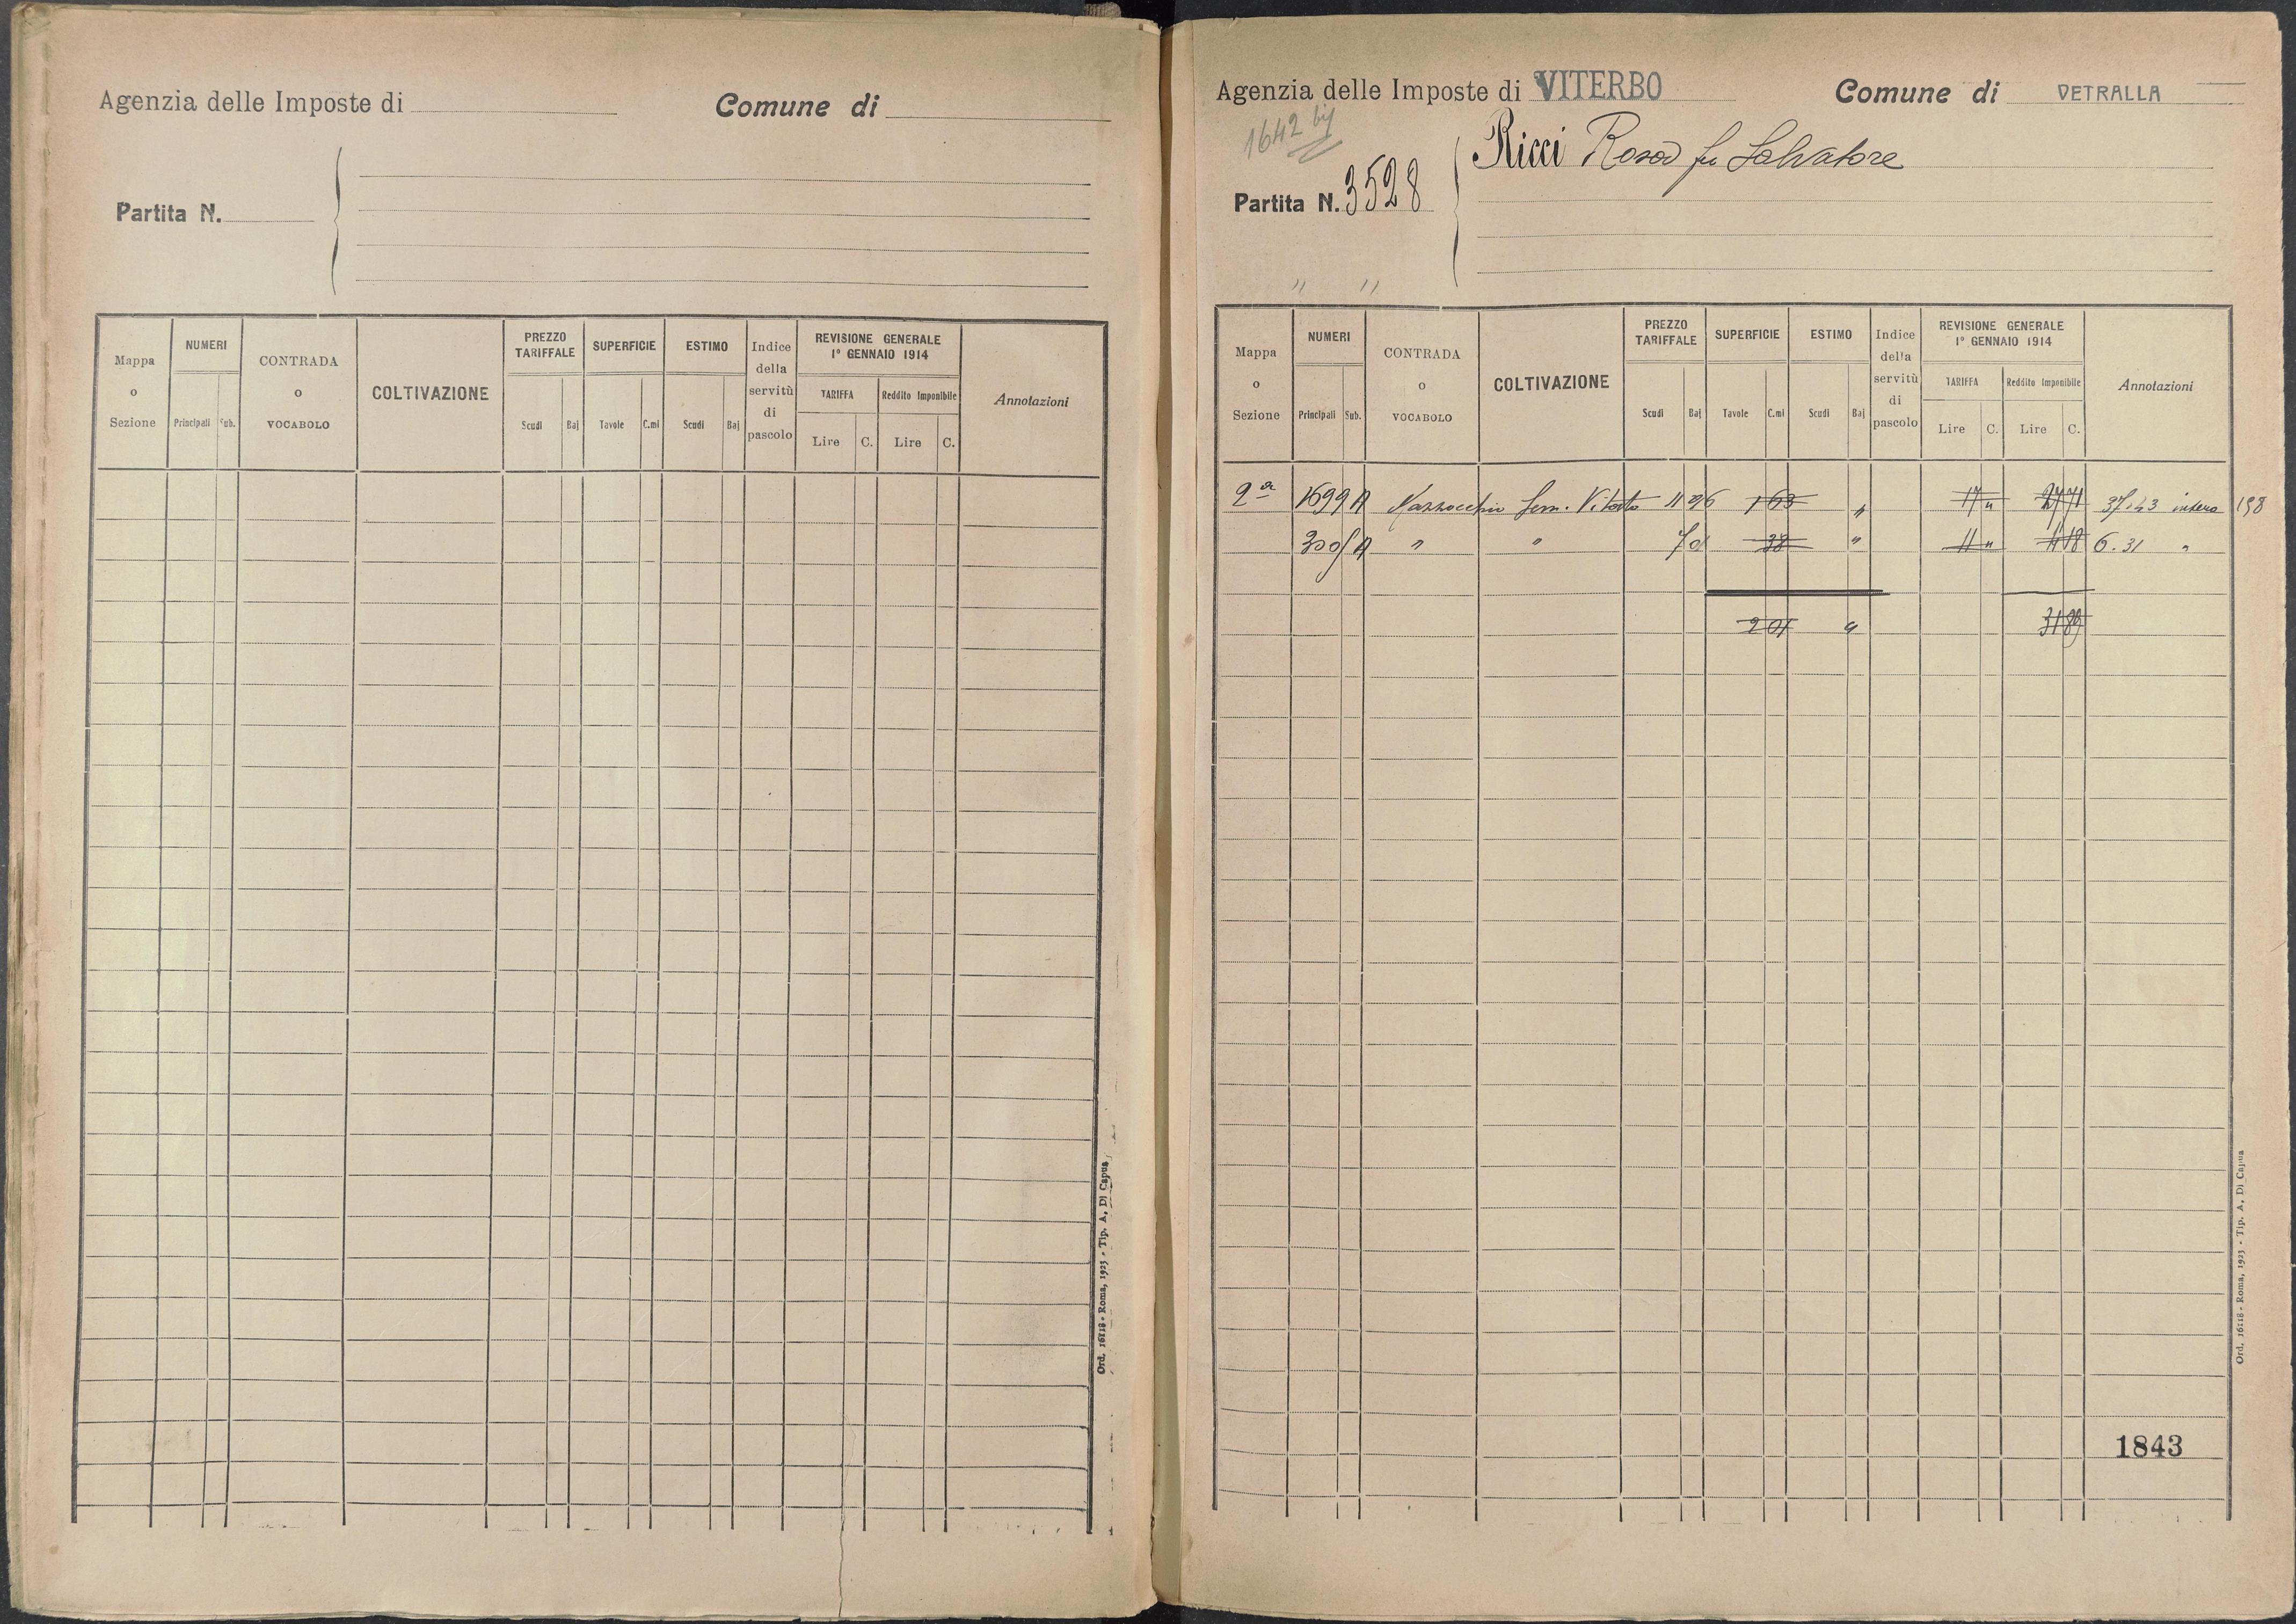 Agenzia delle Imposte di
Comune di
Partita N.
Mappa o Sezione
NUMERI
Principali Sub.
CONTRADA o VOCABOLO
COLTIVAZIONE
PREZZO TARIFFALE
Scudi Baj
SUPERFICIE
Tavole C.mi
ESTIMO
Scudi Baj
Indice della servitù di pascolo
REVISIONE GENERALE 1° GENNAIO 1914
TARIFFA
Lire C.
Reddito Imponibile
Lire C.
Annotazioni
Ord. 16118 - Roma, 1923 - Tip. A. Di Capua
Agenzia delle Imposte di VITERBO
Comune di VETRALLA
1642
Ricci Rosa fu Salvatore
Partita N. 3528
" "
Mappa o Sezione
NUMERI
Principali Sub.
CONTRADA o VOCABOLO
COLTIVAZIONE
PREZZO TARIFFALE
Scudi Baj
SUPERFICIE
Tavole C.mi
ESTIMO
Scudi Baj
Indice della servitù di pascolo
REVISIONE GENERALE 1° GENNAIO 1914
TARIFFA
Lire C.
Reddito Imponibile
Lire C.
Annotazioni
2a 1699 A Sem. Vitato 1 63 " 17 " 27 71 37.43 intera 198
A " " 38 " 11 " 4 18 6.31 "
2 01 " 31 89
1843
Ord. 16118 - Roma, 1923 - Tip. A. Di Capua